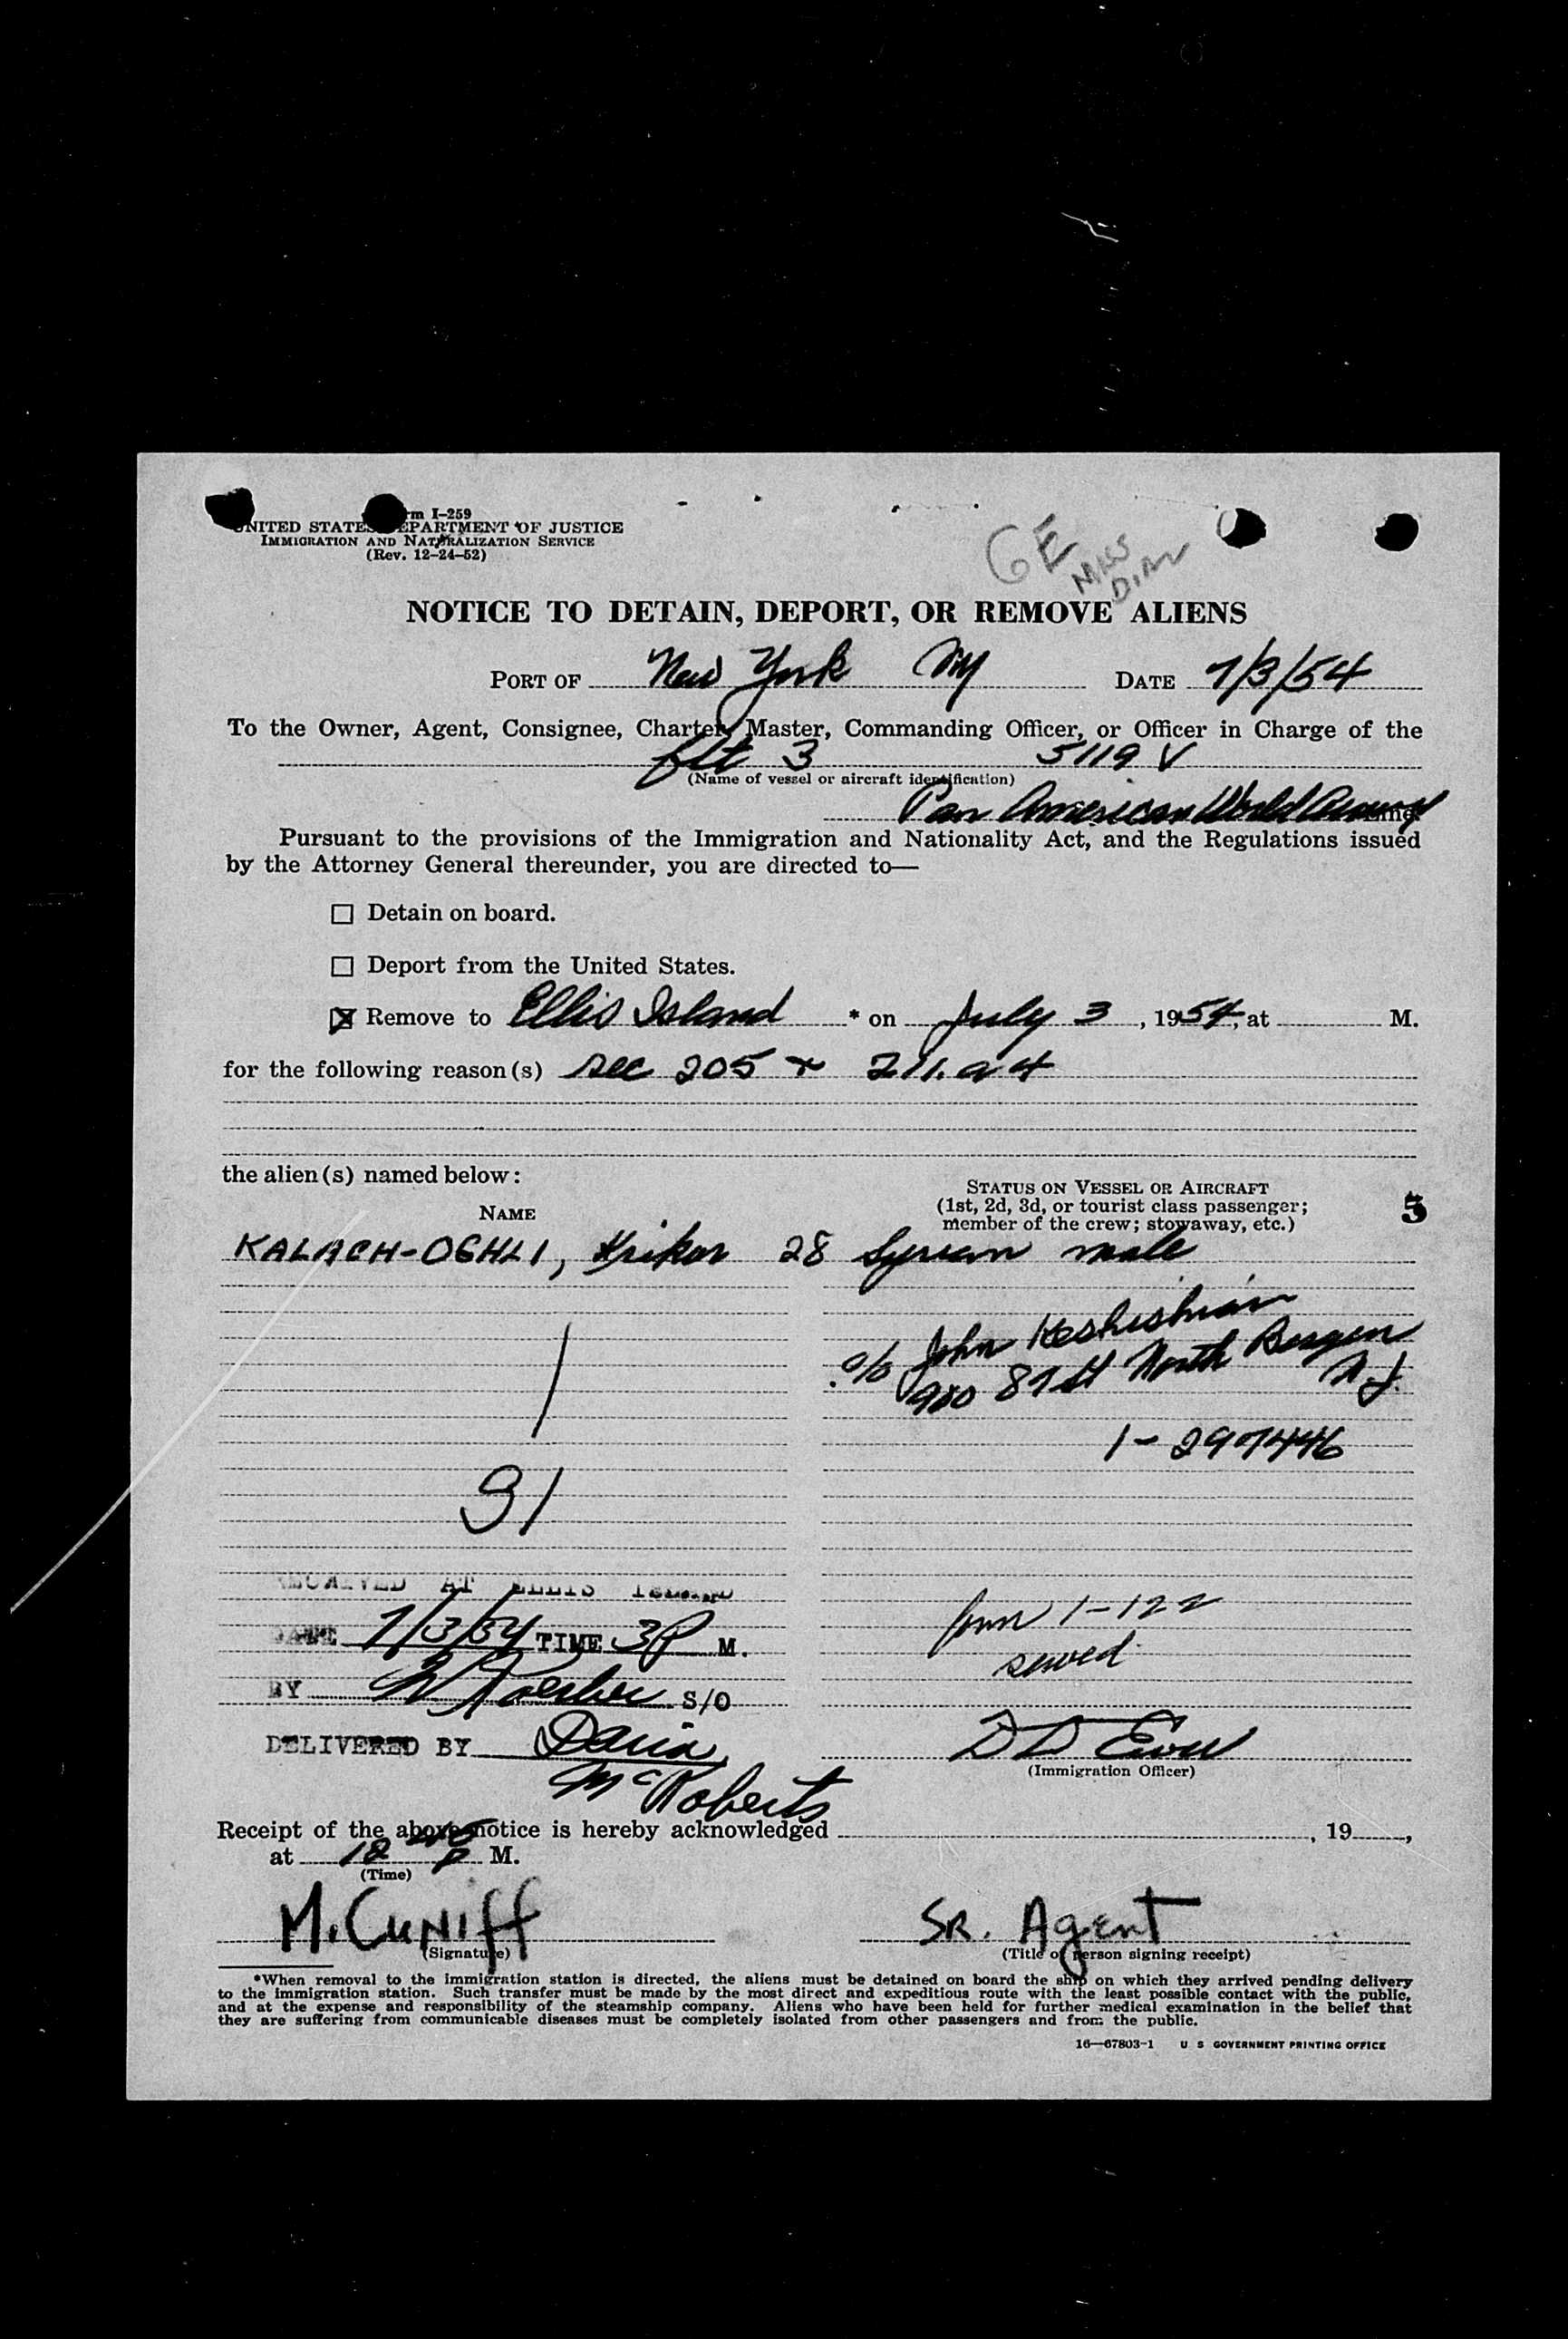 Form I-259
UNITED STATES DEPARTMENT OF JUSTICE
IMMIGRATION AND NATURALIZATION SERVICE
(Rev. 12-24-52)
GE
NOTICE TO DETAIN, DEPORT, OR REMOVE ALIENS
PORT OF New York NY DATE 7/3/54
To the Owner, Agent, Consignee, Charter, Master, Commanding Officer, or Officer in Charge of the
flt 3 5119 V
(Name of vessel or aircraft identification)
Pan American World Airways
Pursuant to the provisions of the Immigration and Nationality Act, and the Regulations issued
by the Attorney General thereunder, you are directed to—
☐ Detain on board.
☐ Deport from the United States.
☒ Remove to Ellis Island * on July 3, 1954, at M.
for the following reason(s) sec 205 + 211.a 4
the alien(s) named below:
NAME
STATUS ON VESSEL OR AIRCRAFT
(1st, 2d, 3d, or tourist class passenger;
member of the crew; stowaway, etc.)
5
KALACH-OGHLI, Krikor 28 Syrian male
c/o John Keshishian
980 87 St North Bergen
N J.
1
1-297446
91
RECEIVED AT ELLIS ISLAND
DATE 7/3/54 TIME 3P M.
form 1-122
served
BY S/O
DELIVERED BY Davia
McRoberts
D D
(Immigration Officer)
Receipt of the above notice is hereby acknowledged , 19 ,
at 12 P M.
(Time)
McCuniff
Sr. Agent
(Signature)
(Title of person signing receipt)
*When removal to the immigration station is directed, the aliens must be detained on board the ship on which they arrived pending delivery
to the immigration station. Such transfer must be made by the most direct and expeditious route with the least possible contact with the public,
and at the expense and responsibility of the steamship company. Aliens who have been held for further medical examination in the belief that
they are suffering from communicable diseases must be completely isolated from other passengers and from the public.
16—67803-1 U S GOVERNMENT PRINTING OFFICE